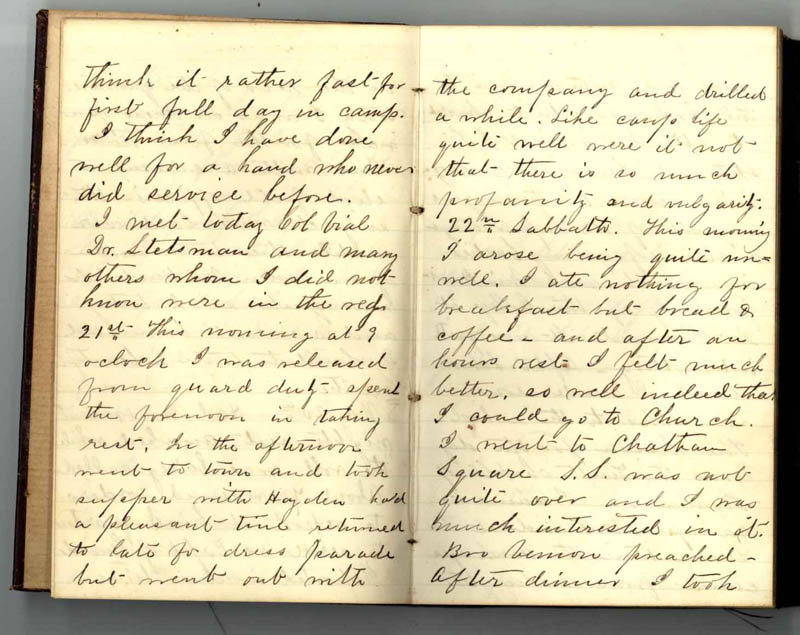 think it rather fast for
first full day in camp.
I think I have done
well for a hand who never
did service before.
I met today Col
Dr. Stetsman and many
others whom I did not
know were in the reg.
21st This morning at 9
oclock I was released
from guard duty - spent
the forenoon in taking
rest. In the afternoon
went to town and took
supper with Hayden had
a pleasant time returned
to late fo dress parade
but went out with
the company and drilled
a while. Like camp life
quite well were it not
that there is so much
profanity and vulgarity.
22n Sabbath. This morning
I arose being quite un=
well. I ate nothing for
breakfast but bread &
coffee - and after an
hours rest I felt much
better, so well indeed that
I could go to Church.
I went to Chatham
Square S.S. was not
quite over and I was
much interested in it.
Bro preached -
After dinner I took